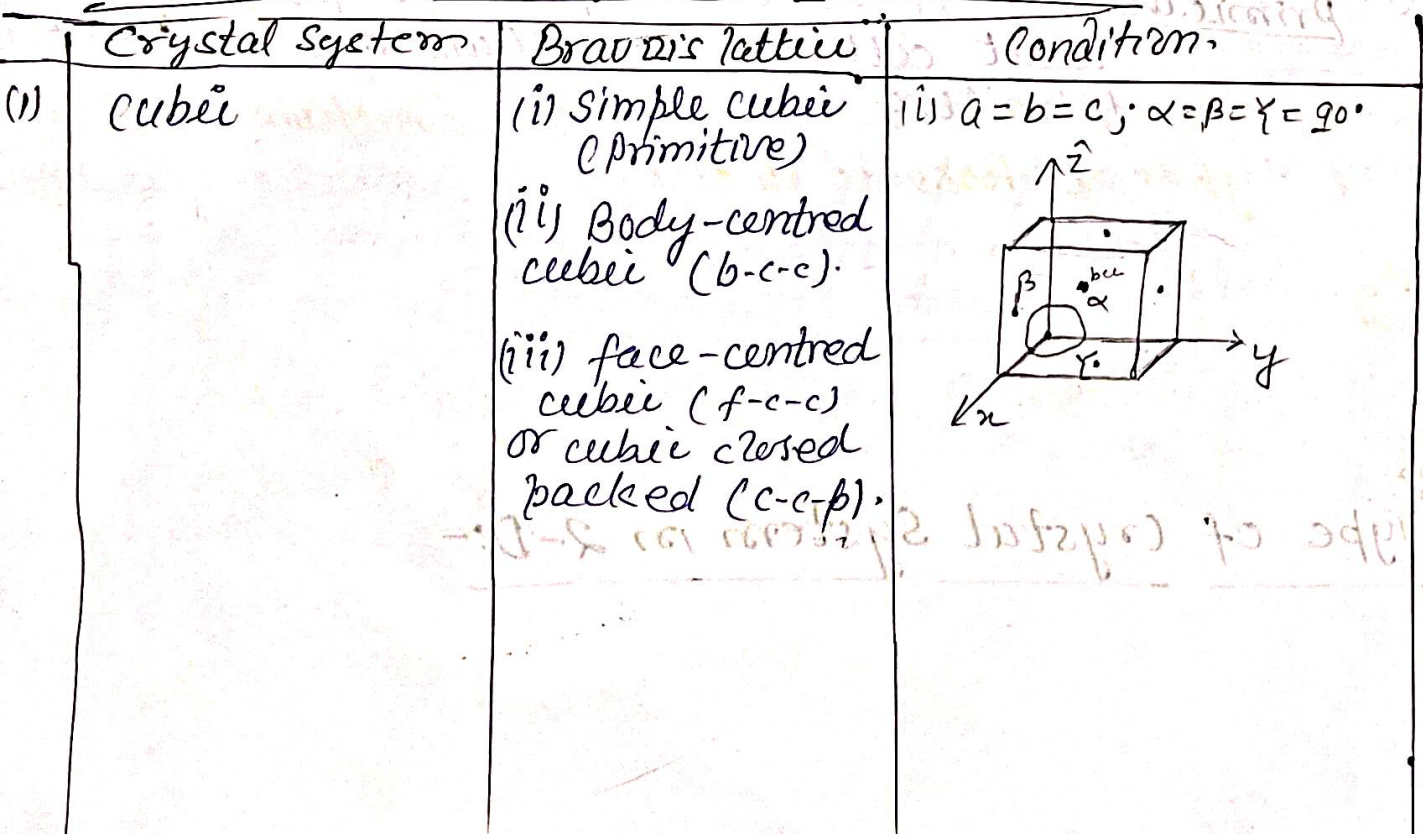 Crystal System
Bravais lattice
Condition.
(1)
cubic
(i) Simple cubic
(Primitive)
(ii) Body-centred
cubic (b-c-c).
(iii) face-centred
cubic (f-c-c)
or cubic closed
packed (c-c-p).
(i) a = b = c; α = β = γ = 90°
ẑ
β
bcc
α
γ
y
x